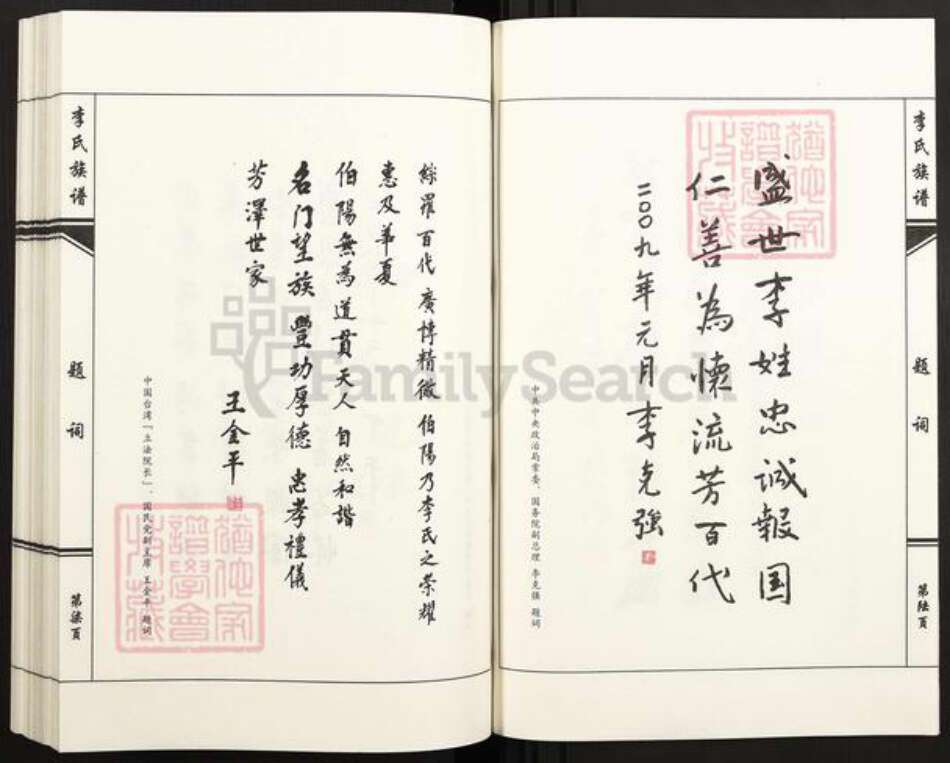 李氏族谱
题词
第陆頁
盛世李姓忠诚報国
仁善為懷流芳百代
二〇〇九年元月李克強
中共中央政治局常委、国务院副总理 李克强 题词
綿羅百代 廣博精微 伯陽乃李氏之榮耀
惠及華夏
伯陽無為道貫天人 自然和諧
名门望族 豐功厚德 忠孝禮儀
芳澤世家
王金平
中国台湾「立法院长」、国民党副主席 王金平 题词
李氏族谱
题词
第柒頁
FamilySearch